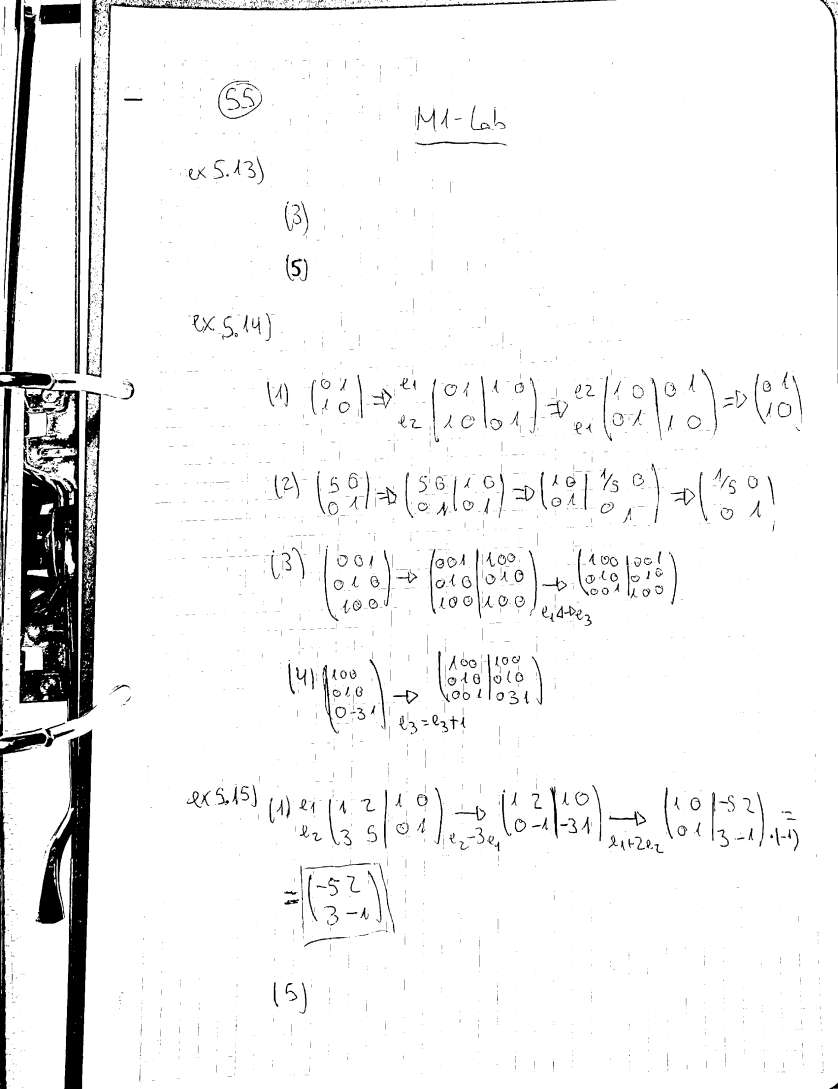 55
M1-Lab
ex 5.13)
(3)
(5)
ex 5.14)
(1) (0 1 / 1 0) => e1 e2 (0 1 | 1 0 / 1 0 | 0 1) => e2 e1 (1 0 | 0 1 / 0 1 | 1 0) => (0 1 / 1 0)
(2) (5 0 / 0 1) => (5 0 | 1 0 / 0 1 | 0 1) => (1 0 | 1/5 0 / 0 1 | 0 1) => (1/5 0 / 0 1)
(3) (0 0 1 / 0 1 0 / 1 0 0) → (0 0 1 | 1 0 0 / 0 1 0 | 0 1 0 / 1 0 0 | 1 0 0) → e1↔e3 (1 0 0 | 0 0 1 / 0 1 0 | 0 1 0 / 0 0 1 | 1 0 0)
(4) (1 0 0 / 0 1 0 / 0 -3 1) → e3=e3+1 (1 0 0 | 1 0 0 / 0 1 0 | 0 1 0 / 0 0 1 | 0 3 1)
ex 5.15) (1) e1 e2 (1 2 | 1 0 / 3 5 | 0 1) → e2-3e1 (1 2 | 1 0 / 0 -1 | -3 1) → e1+2e2 (1 0 | -5 2 / 0 1 | 3 -1) ·(-1) =
= (-5 2 / 3 -1)
(5)